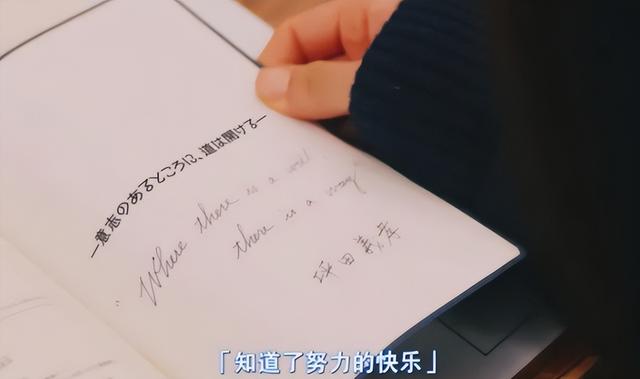 ―意志のあるところに、道は開ける―
"Where there is a will
there is a way
坪田義孝
「知道了努力的快乐」